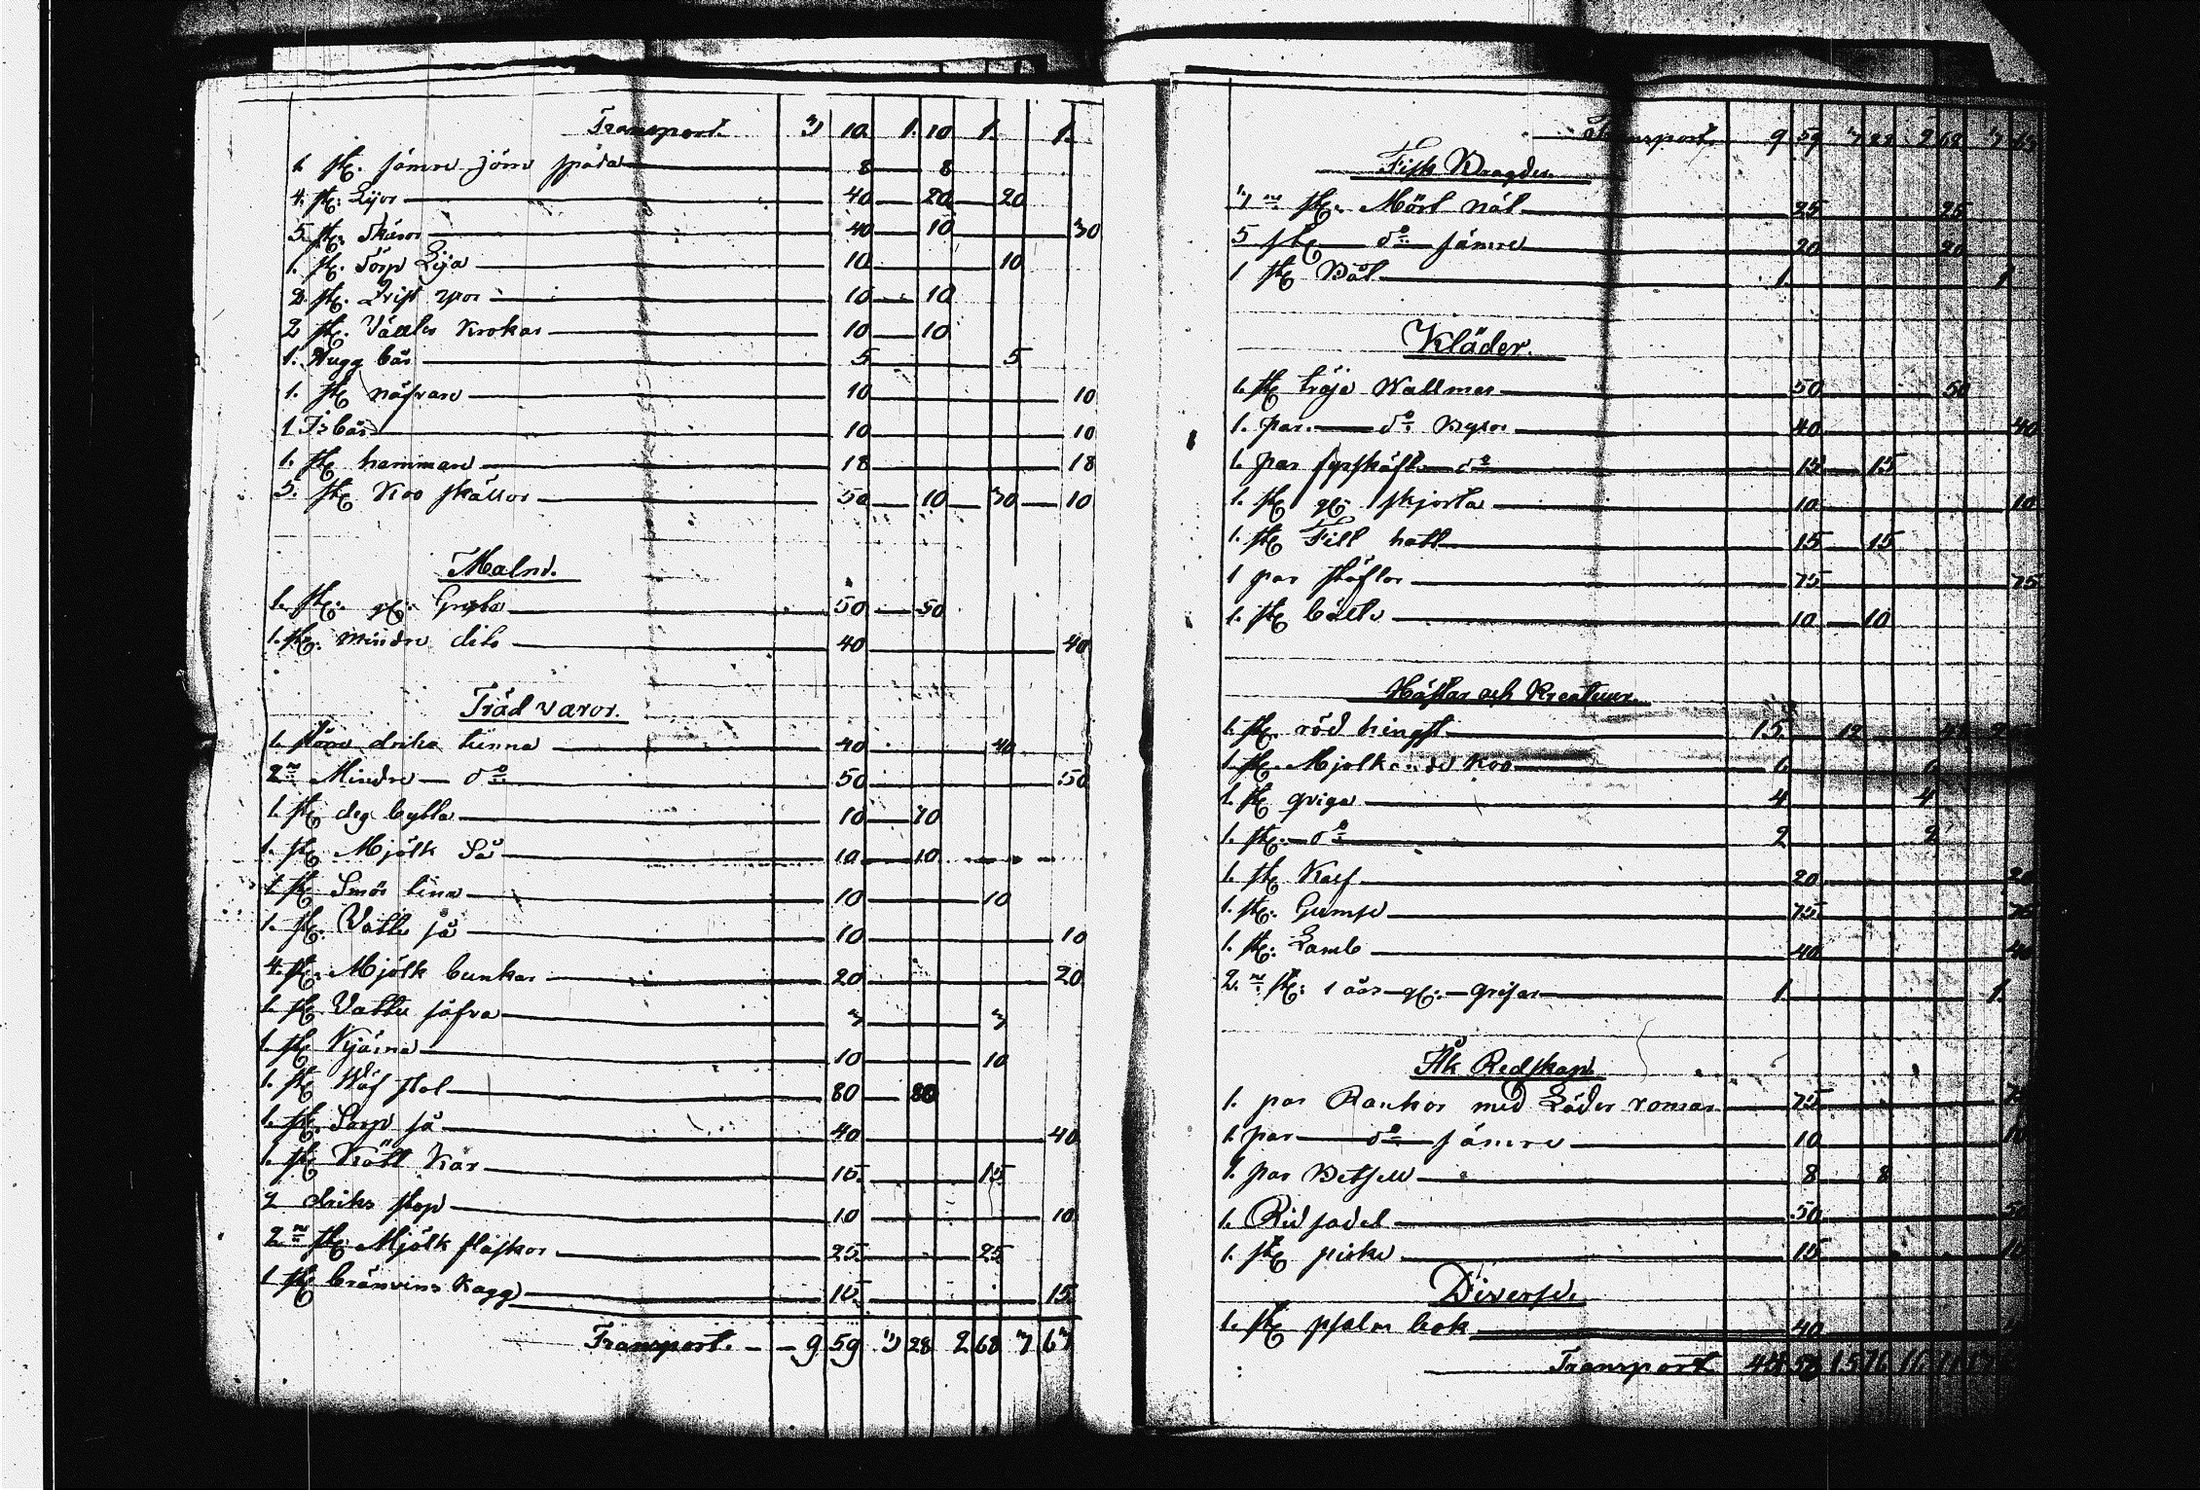 Transport. 3 10 1. 10 1. 1.
1. st. sämre järn spada 8 8
4. st. Lijor 40 20 20
5. st. Skäror 40 10 30
1. st. Törp Lija 10 10
2. st. yxor 10 10
2 st. Krokar 10 10
1. Hugg bär 5 5
1. st näfvare 10 10
1 Isbär 10 10
1. st hammare 18 18
5. st Koo skällor 50 10 30 10
Malm.
1. st. gl: Gryta 50 50
1. st. mindre dito 40 40
Träd varor.
1. större dricks tunna 40 40
2ne Mindre do 50 50
1. st deg bytta 10 10
1. st Mjölk Så 10 10
1 st Smör tina 10 10
1. st. Vattu så 10 10
4. st. Mjölk bunkar 20 20
1. st Vattu såfra 3 3
1. st Kjärna 10 10
1. st Wäf stol 80 80
1. st. Sorp så 40 40
1. st Kött Kar 15. 15
2 dricks stop 10 10
2ne st. Mjölk flaskor 25 25
1 st bränvins Kagge 15. 15.
Transport. 9 59 3 28 2 68 3 63
Transport. 9 59 3 28 2 68 3 63
Fisk Bragder
3ne st. Mört nät 25 25
5 st do sämre 20 20
1 st Båt 1 1
Kläder.
1. st tröja Wallmar 50 50
1. par do Byxor 40 40
1. par do 15 15
1. st gl: skjorta 10 10
1. st Filt hatt 15 15
1 par stöflor 75 75
1. st bälte 10 10
Hästar och Kreatuur.
1. st. röd hingst 15. 12
1. st. Mjölkande Koo 6 6
1. st qviga 4 4
1. st. do 2 2
1. st Kalf 20 20
1. st. Gumse 75 75
1. st. Lamb 40 40
2ne st: 1 åår gl: grisar 1 1.
Åk Redskap.
1. par Rankor med Läder romar 75 75
1. par do sämre 10 10
1. par Betsell 8 8
1. Rid sadel 50 50
1. st piska 15 15
Diverse.
1. st psalm bok 40
Transport 44 58 15 76 16